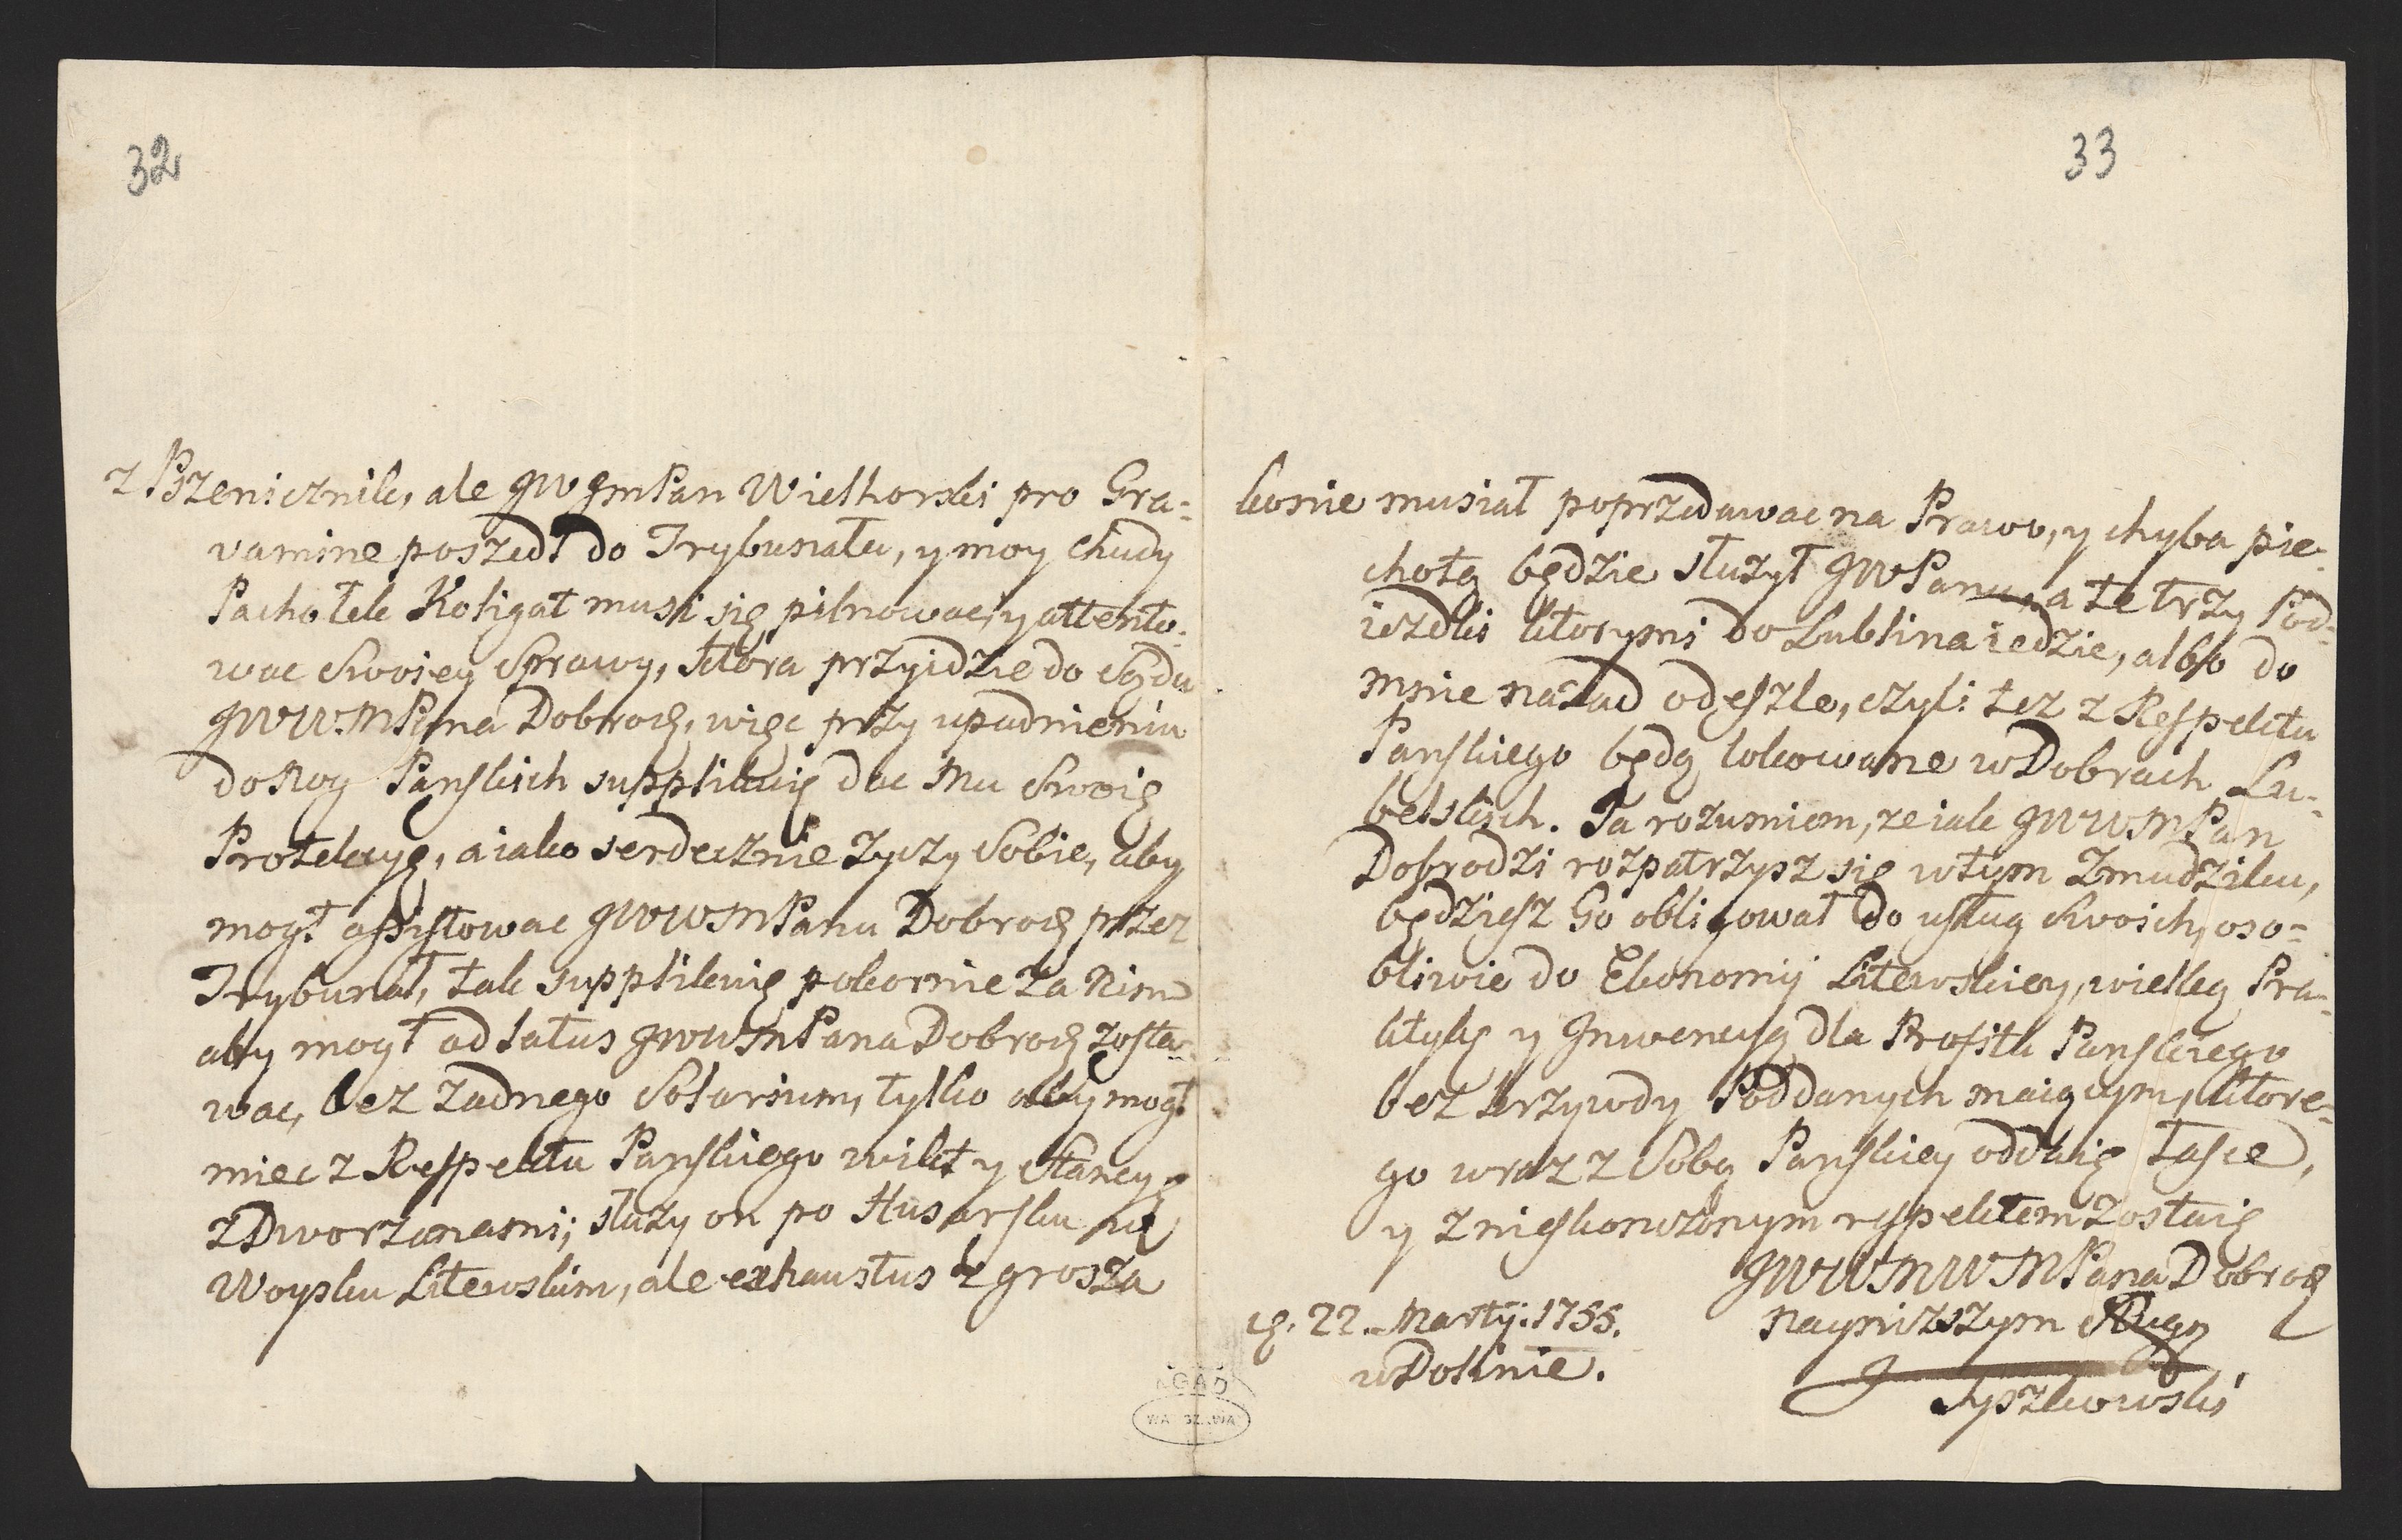 32
z Pszenicznik, ale JWJmPan Wielhorski pro Gra-
vamine poszedł do Trybunału, y moy chudy
Pachołek Koligat musi się pilnowac, y attento-
wac swoiey Sprawy, ktora przyidzie do Sądu
JWWMPana Dobrodz, więc przy upadnieniu
do Nog Panskich supplikuię dac Mu swoię
Protekcyę, a iako serdecznie zyczy sobie, aby
mogł assystowac JWWMPanu Dobrodz przez
Trybunał, tak supplikuię pokornie za Nim
aby mogł ad latus JWWMPana Dobrodz zosta-
wac, bez zadnego Solarium, tylko aby mogł
miec z Respektu Panskiego wikt y Stancyę
z Dworzanami; służy on po Husarsku w
Woysku Litewskim, ale exhaustus z grosza
33
konie musiał poprzedawac na Prawo, y chyba pie-
chotą będzie służył JWPanu, a te trzy Pod-
iezdki ktorymi do Lublina iedzie, albo do
mnie nazad odeszle, czyli tez z Respektu
Panskiego będą lokowane w Dobrach Lu-
belskich. Ja rozumiem, ze iak JWWMPan
Dobrodzi rozpatrzysz się w tym Zmudziku,
będziesz Go obligował do usług swoich, oso-
bliwie do Ekonomij Litewskiey, wielką Pra-
ktykę y Jnwencyą dla Profitu Panskiego
bez krzywdy Poddanych maiącym, ktore-
go wraz z Sobą Panskiey oddaię Łasce,
y z nieskonczonym respektem zostaię
JWWMWMPana Dobrodz
d. 22. Martij. 1755.
w Dolinie.
Nayniższym Sługą
J Tyszkowski
AGAD
WARSZAWA